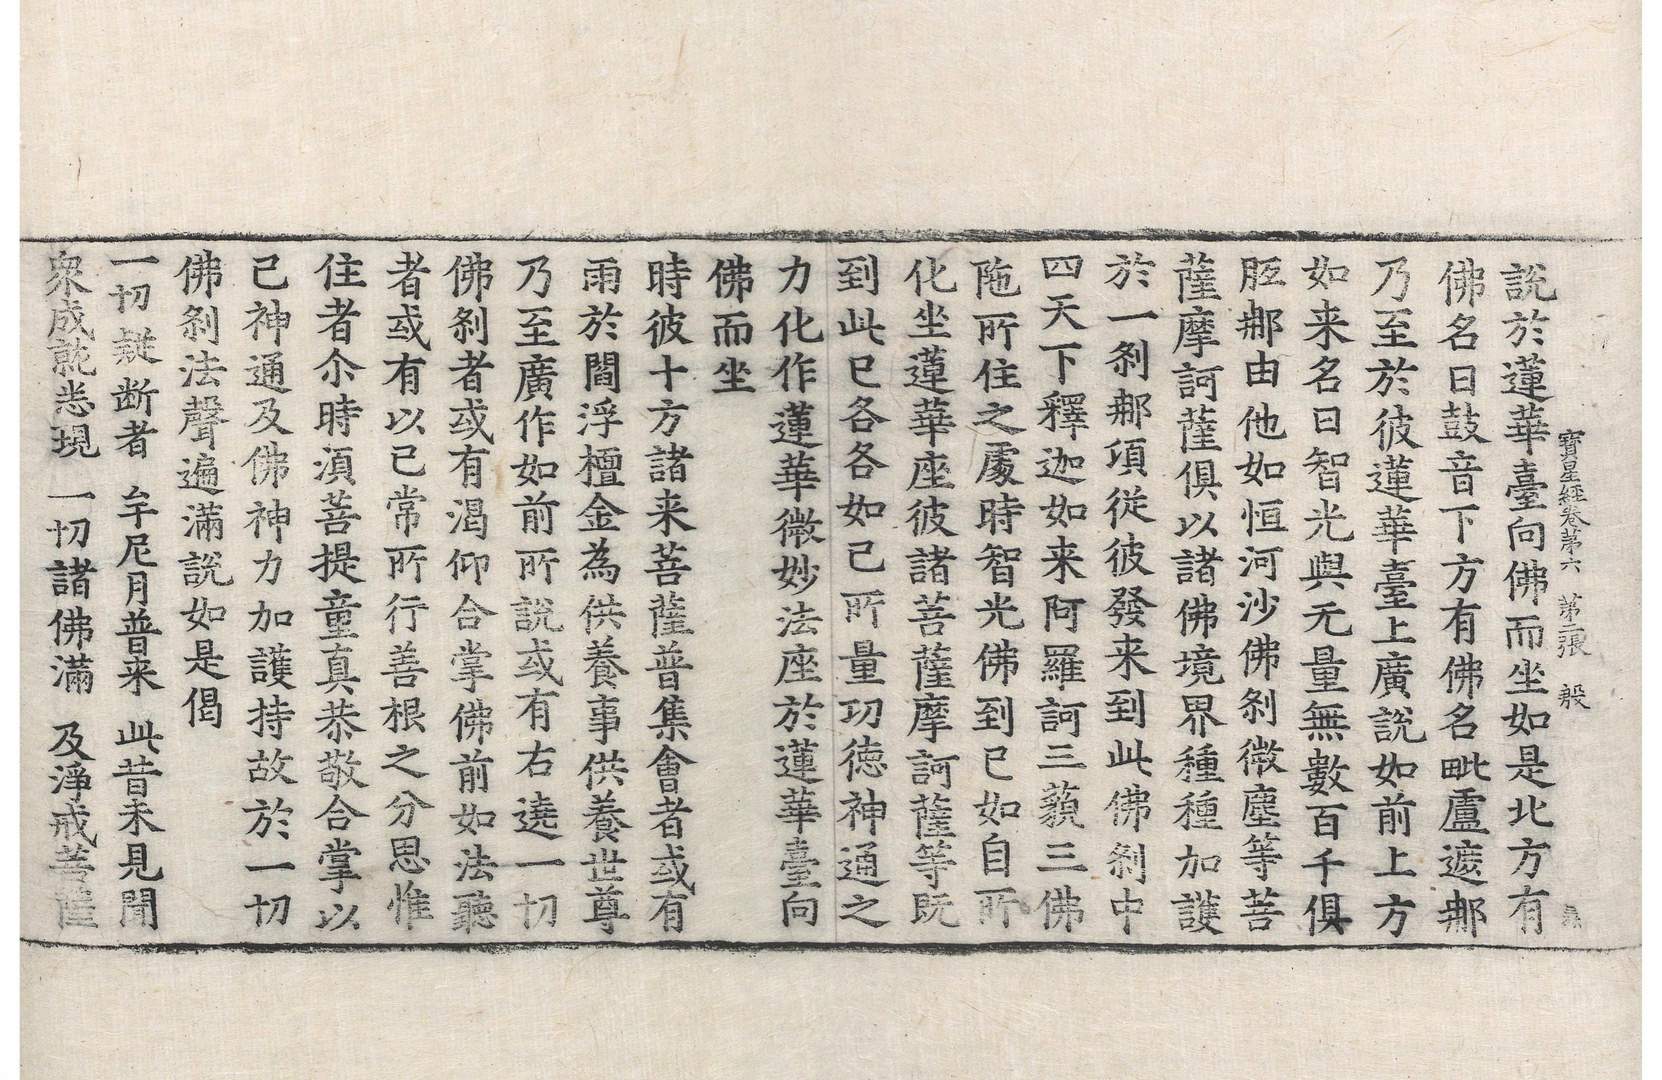 寶星經卷苐六　苐二張　殷
說於蓮華臺向佛而坐如是北方有
佛名曰鼓音下方有佛名毗盧遮那
乃至於彼蓮華臺上廣說如前上方
如来名曰智光與无量無數百千俱
胝那由他如恒河沙佛剎微塵等菩
薩摩訶薩俱以諸佛境界種種加護
於一剎那頃從彼發来到此佛剎中
四天下釋迦如来阿羅訶三藐三佛
陁所住之處時智光佛到已如自所
化坐蓮華座彼諸菩薩摩訶薩等既
到此已各各如己所量功德神通之
力化作蓮華微妙法座於蓮華臺向
佛而坐
時彼十方諸来菩薩普集會者或有
雨於閻浮檀金為供養事供養世尊
乃至廣作如前所說或有右遶一切
佛剎者或有渴仰合掌佛前如法聽
者或有以己常所行善根之分思惟
住者尒時湏菩提童真恭敬合掌以
己神通及佛神力加護持故於一切
佛剎法聲遍滿說如是偈
一切疑断者　牟尼月普来　此昔未見聞
衆成就悉現　一切諸佛滿　及淨戒菩薩